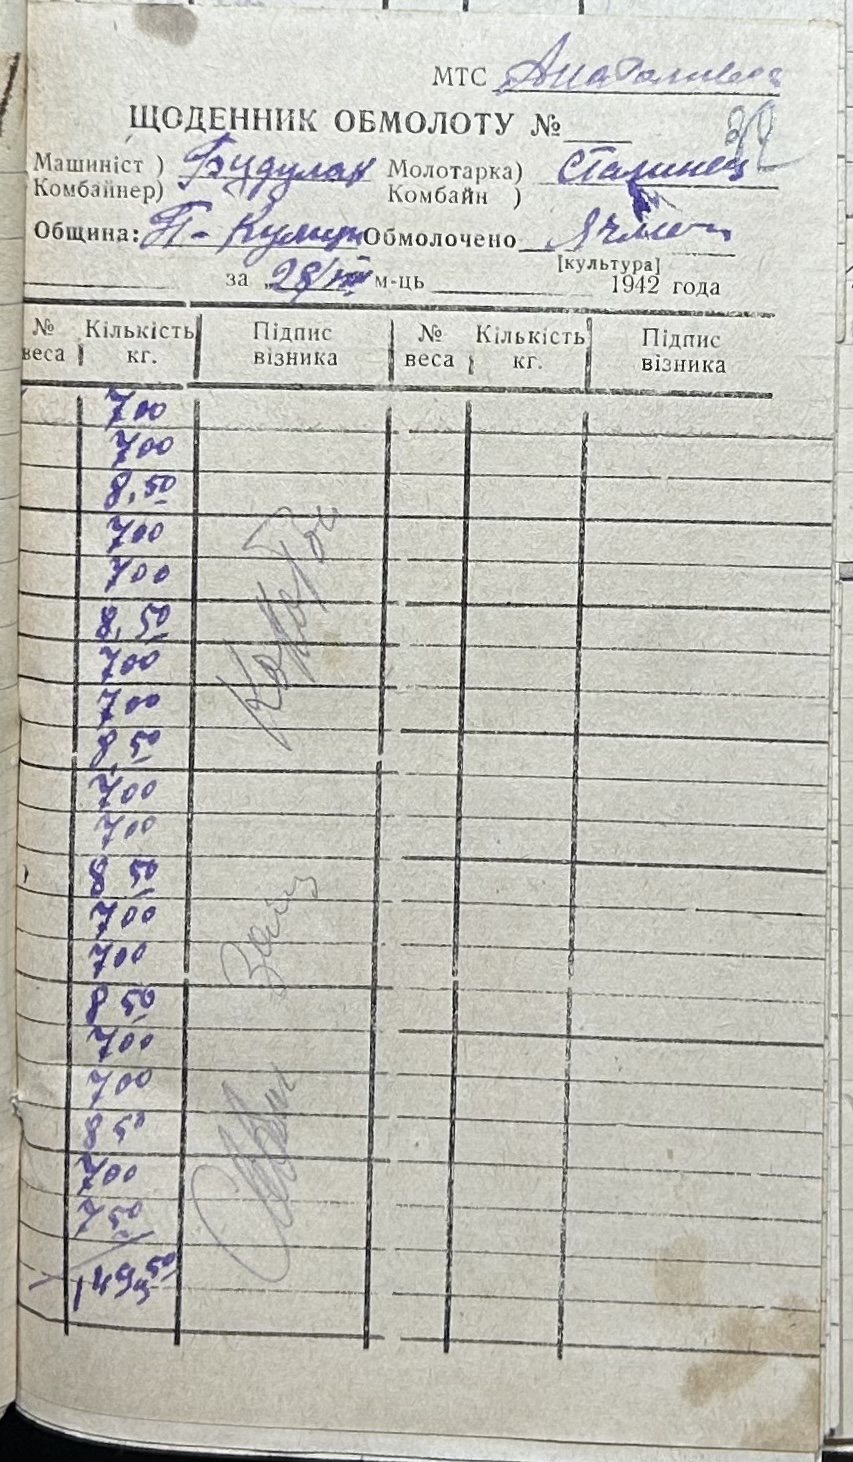 МТС
ЩОДЕННИК ОБМОЛОТУ № 32
Машиніст ) Будулак Молотарка) Сталинец
Комбайнер) Комбайн )
Община: Обмолочено Ячмень
[культура]
за „28/VII м-ць 1942 года
№ веса Кількість кг. Підпис візника № веса Кількість кг. Підпис візника
700
700
8,50
700
700
8,50
700
700
8,50
700
700
8 50
700
700
8 50
700
700
8 50
700
7 50
149ц 50